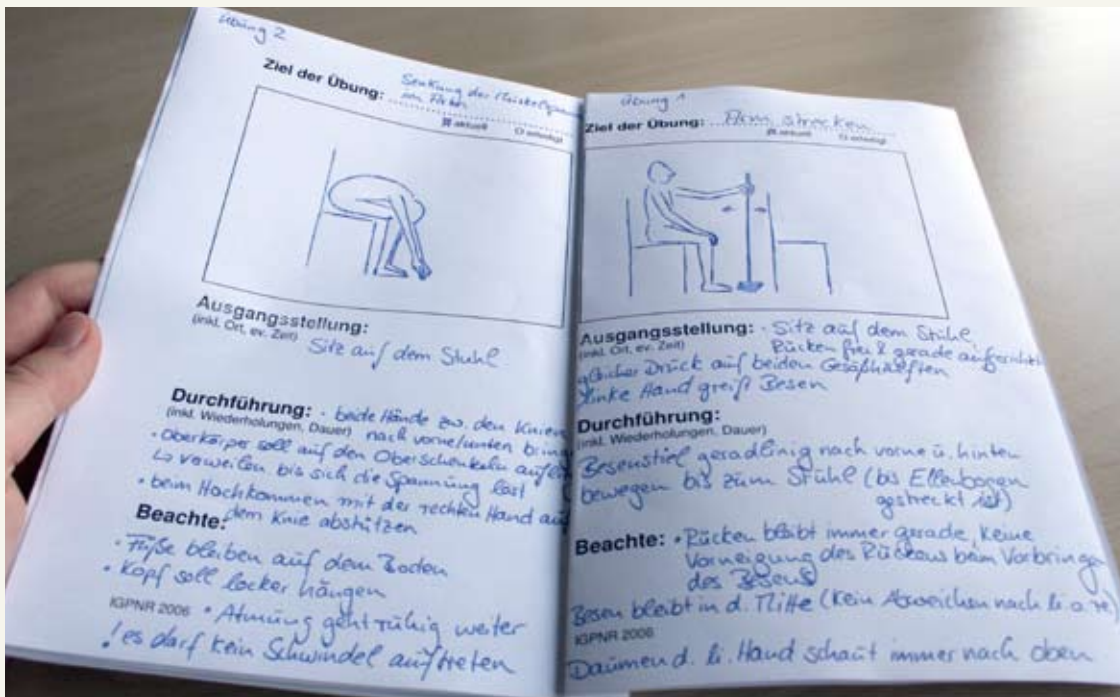 Übung 2
Ziel der Übung: Senkung der Muskelspan
im Arm
aktuell erledigt
Ausgangsstellung:
(inkl. Ort, ev. Zeit) Sitz auf dem Stuhl
Durchführung: · beide Hände zw. den Knien
(inkl. Wiederholungen, Dauer) nach vorne/unten bring
· Oberkörper soll auf den Oberschenkeln auflie
↳ verweilen bis sich die Spannung löst
· beim Hochkommen mit der rechten Hand auf
dem Knie abstützen
Beachte:
· Füße bleiben auf dem Boden
· Kopf soll locker hängen
IGPNR 2006 · Atmung geht ruhig weiter
! es darf kein Schwindel auftreten
Übung 1
Ziel der Übung: Arm strecken
aktuell erledigt
Ausgangsstellung: · Sitz auf dem Stuhl,
(inkl. Ort, ev. Zeit) Rücken frei & gerade aufgerichtet
gleicher Druck auf beiden Gesäßhälften
linke Hand greift Besen
Durchführung:
(inkl. Wiederholungen, Dauer)
Besenstiel geradlinig nach vorne u. hinten
bewegen bis zum Stuhl (bis Ellenbogen
gestreckt ist)
Beachte: · Rücken bleibt immer gerade, keine
Vorneigung des Rückens beim Vorbringen
des Besens
Besen bleibt in d. Mitte (kein Abweichen nach li. o. re)
IGPNR 2006
Daumen d. li. Hand schaut immer nach oben